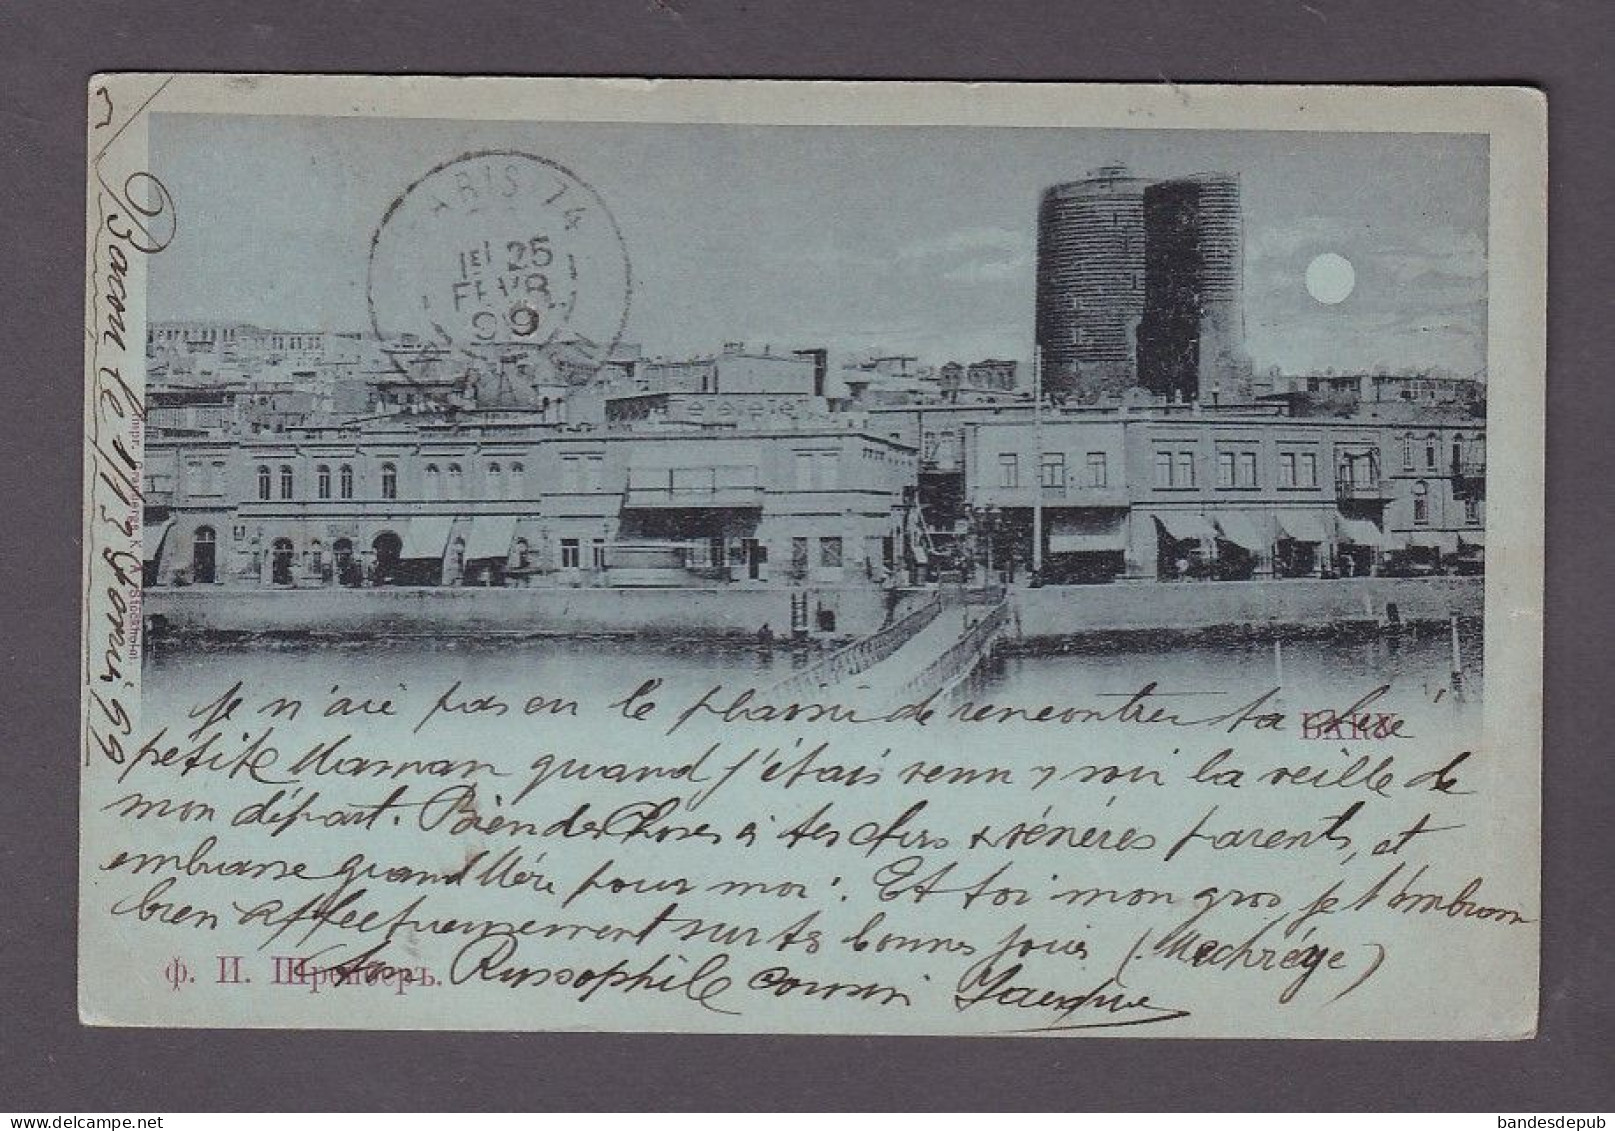 Bacou le 1/13 février 99
PARIS 74
1E/ 25
FEVR
99
Impr. Granbergs K. A. Stockholm.
Je n'ai pas eu le plaisir de rencontrer ta chère
BAKU
petite Maman quand j'étais venu y voir la veille de
mon départ. Bien des choses à tes chers & vénérés parents, et
embrasse grand Mère pour moi. Et toi mon gros je t'embrasse
bien affectueusement sur tes bonnes joues (Machréye)
ф. И. Шрейберъ.
Ton Russophile cousin Jacques
bandesdepub